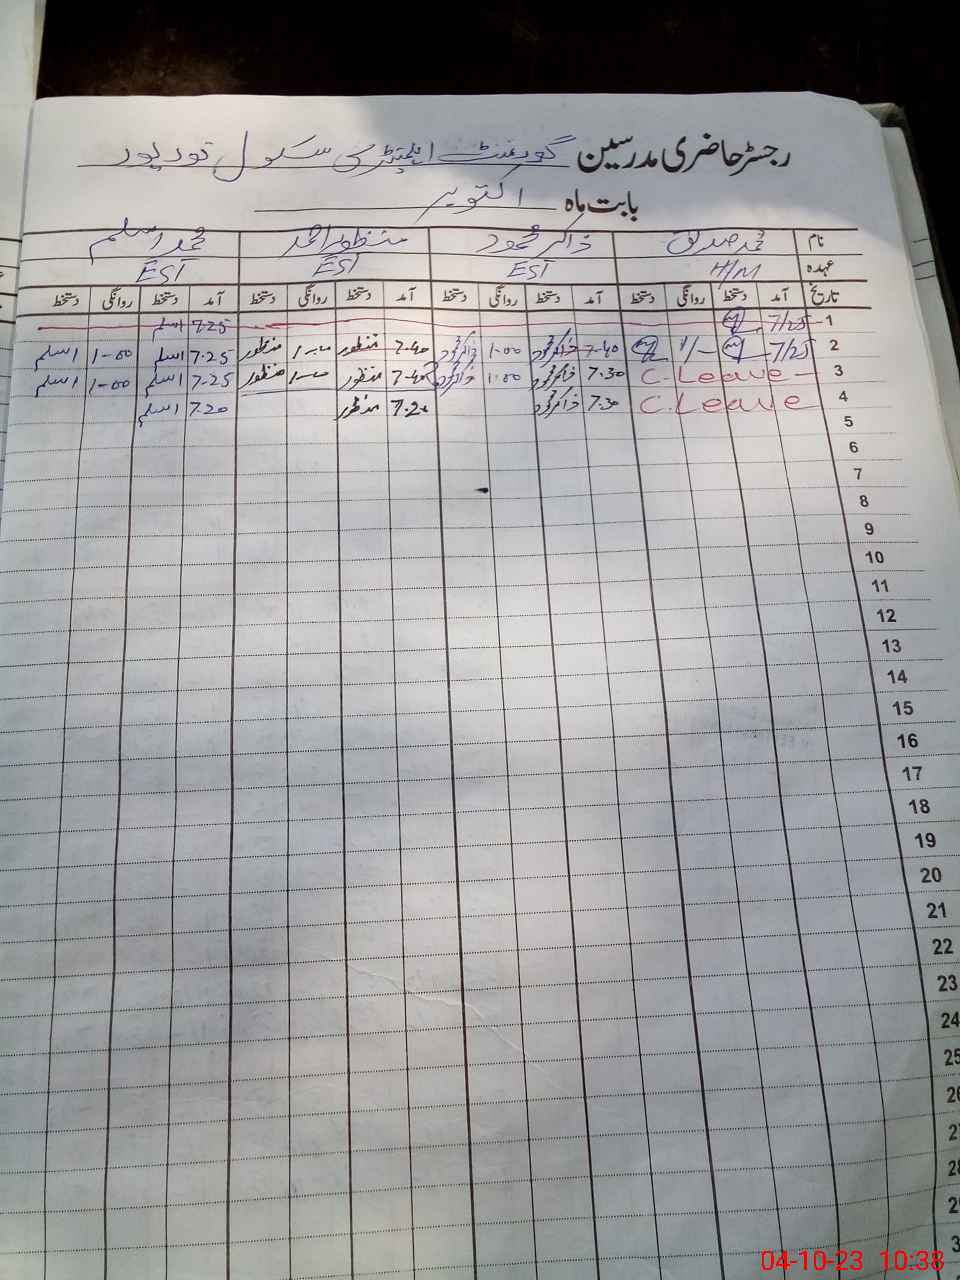 رجسٹر حاضری مدرسین گورنمنٹ ایلیمنٹری سکول نور پور
بابت ماہ اکتوبر
نام محمد صدیق ذاکر محمود منظور احمد محمد اسلم
عہدہ H/M EST EST EST
تاریخ آمد دستخط روانگی دستخط آمد دستخط روانگی دستخط آمد دستخط روانگی دستخط آمد دستخط روانگی دستخط
1 7/25 7.25 اسلم
2 7/25 1/- 7-40 ذاکر محمود 1-00 ذاکر محمود 7-40 منظور منظور 7.25 اسلم 1-00 اسلم
3 C. Leave 7.30 ذاکر محمود 1.00 ذاکر محمود 7-40 منظور منظور 7.25 اسلم 1-00 اسلم
4 C. Leave 7.30 ذاکر محمود 7.20 منظور 7.20 اسلم
5
6
7
8
9
10
11
12
13
14
15
16
17
18
19
20
21
22
23
24
25
04-10-23 10:38